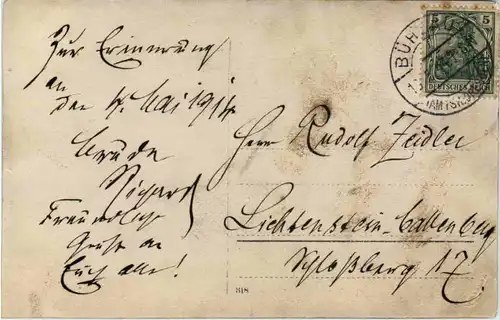 Zur Erinnerung
an
den 4. Mai 1914
Bruder
Richard
Freundliche
Grüße an
Euch alle!
Herrn Rudolf Zeidler
Lichtenstein-Callenberg
Schloßberg 17.
318
BÜH
5 5
DEUTSCHES REICH